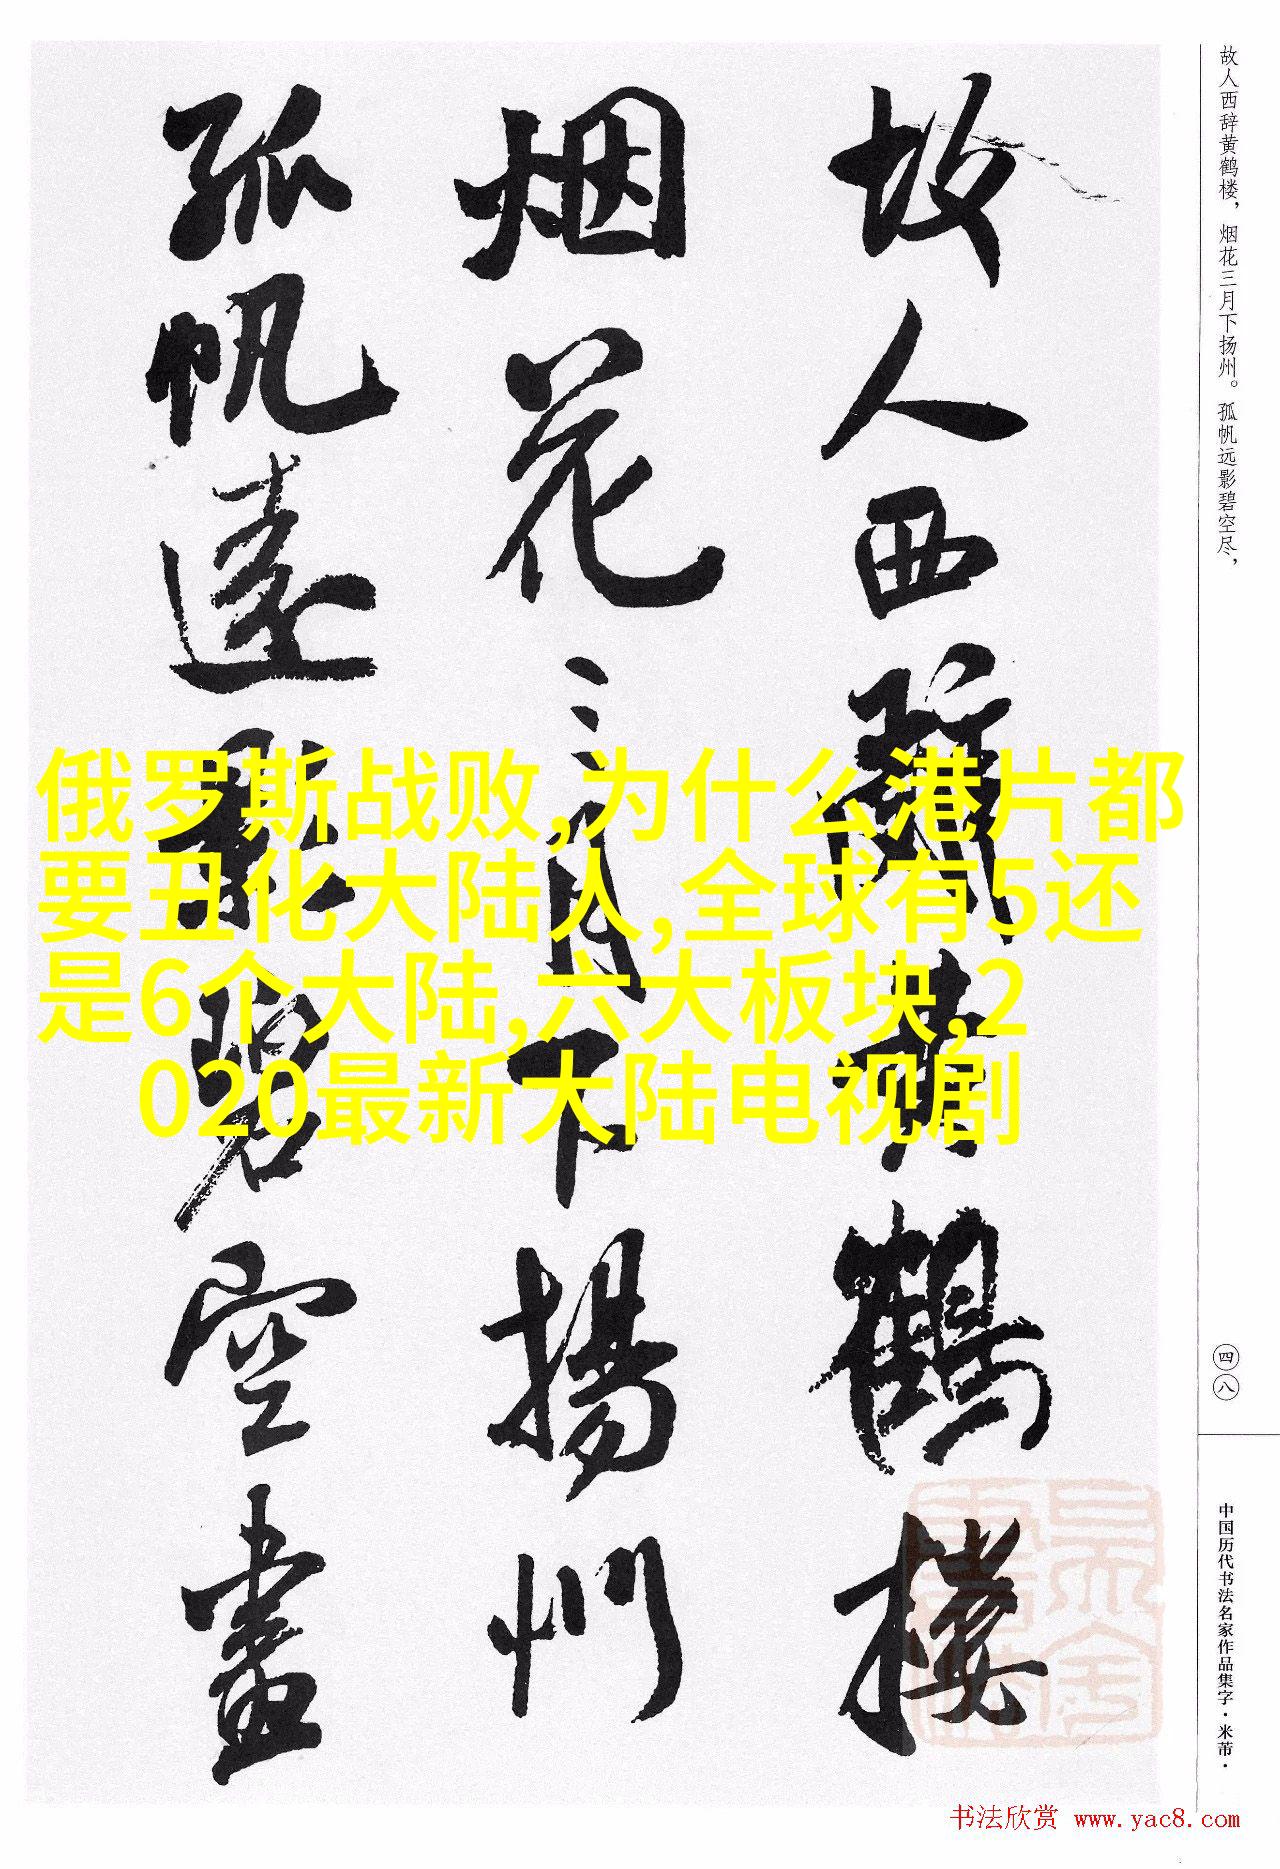 故人西辞黄鹤楼，烟花三月下扬州。孤帆远影碧空尽，
故人西辭黄鶴樓
烟花三月下揚州
孤帆遠影碧空盡
俄罗斯战败,为什么港片都
要丑化大陆人,全球有5还
是6个大陆,六大板块,2
020最新大陆电视剧
四八
中国历代书法名家作品集字·米芾·
书法欣赏 www.yac8.com